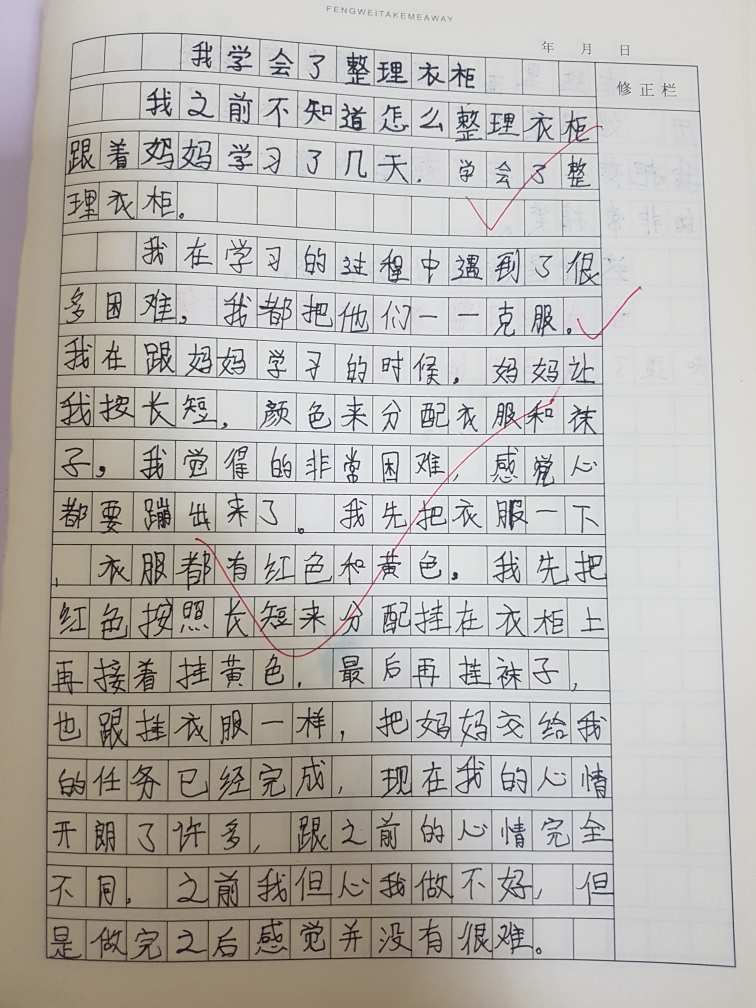 FENGWEITAKEMEAWAY
年 月 日
修正栏
我学会了整理衣柜
我之前不知道怎么整理衣柜
跟着妈妈学习了几天.学会了整
理衣柜。
我在学习的过程中遇到了很
多困难,我都把他们一一克服。
我在跟妈妈学习的时候,妈妈让
我按长短,颜色来分配衣服和袜
子。我觉得的非常困难,感觉心
都要蹦出来了。我先把衣服一下
,衣服都有红色和黄色。我先把
红色按照长短来分配挂在衣柜上
再接着挂黄色.最后再挂袜子,
也跟挂衣服一样,把妈妈交给我
的任务已经完成,现在我的心情
开朗了许多,跟之前的心情完全
不同.之前我但心我做不好,但
是做完之后感觉并没有很难。